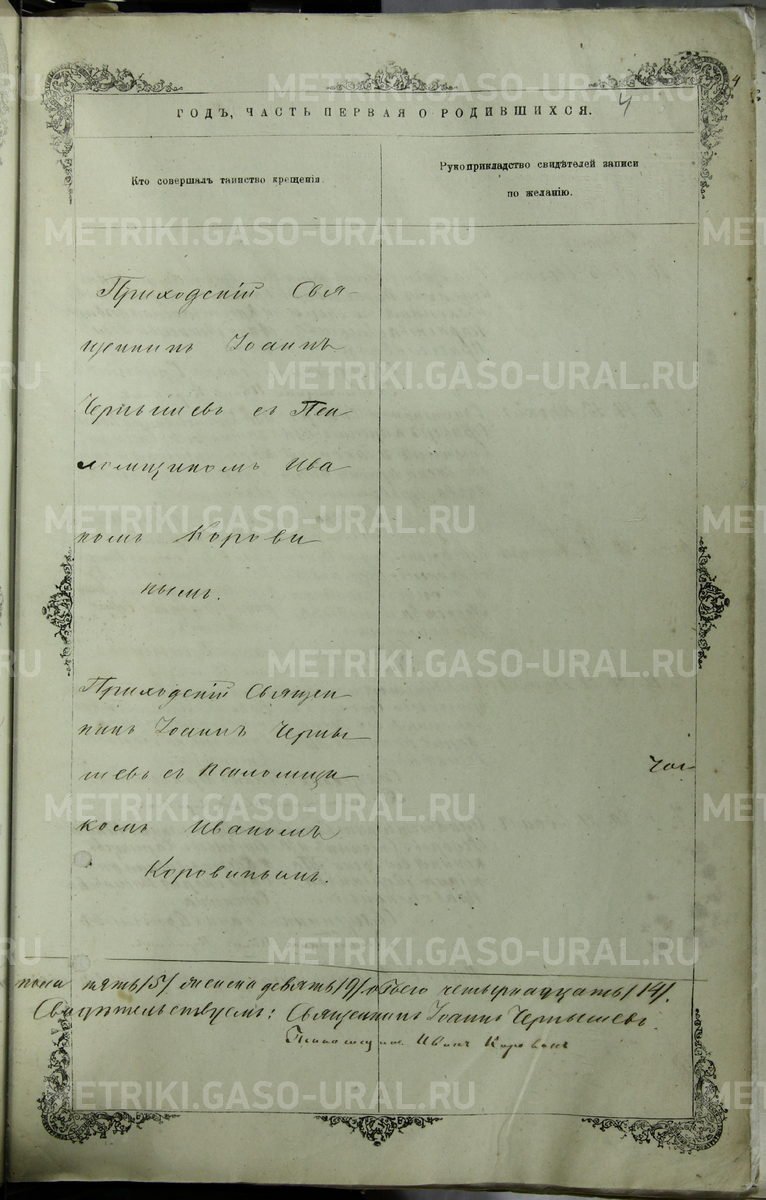 ГОДЪ, ЧАСТЬ ПЕРВАЯ О РОДИВШИХСЯ.
4
4
Кто совершалъ таинство крещенія.
Рукоприкладство свидѣтелей записи
по желанію.
Приходскій Свя-
щенникъ Іоаннъ
Чернышевъ съ Пса
ломщикомъ Ива
номъ Корови
нымъ.
Приходскій Священ-
никъ Іоаннъ Черны-
шевъ съ Псаломщи
комъ Иваномъ
Коровинымъ.
пола пять /5/ женска девять /9/ обоего четырнадцать /14/.
Свидѣтельствуемъ: Священникъ Іоаннъ Чернышевъ.
Псаломщикъ Иванъ Коровинъ
METRIKI.GASO-URAL.RU